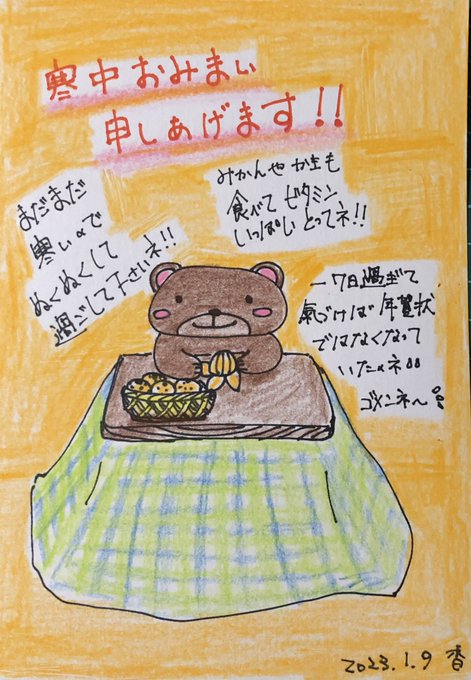 寒中おみまい
申しあげます!!
まだまだ
寒いので
ぬくぬくして
過ごして下さいネ!!
みかんや かきも
食べて ビタミン
いっぱい とってネ!!
一7日過ぎて
気づけば 年賀状
ではなくなって
いたのネ
ゴメンネ〜
2023.1.9 香